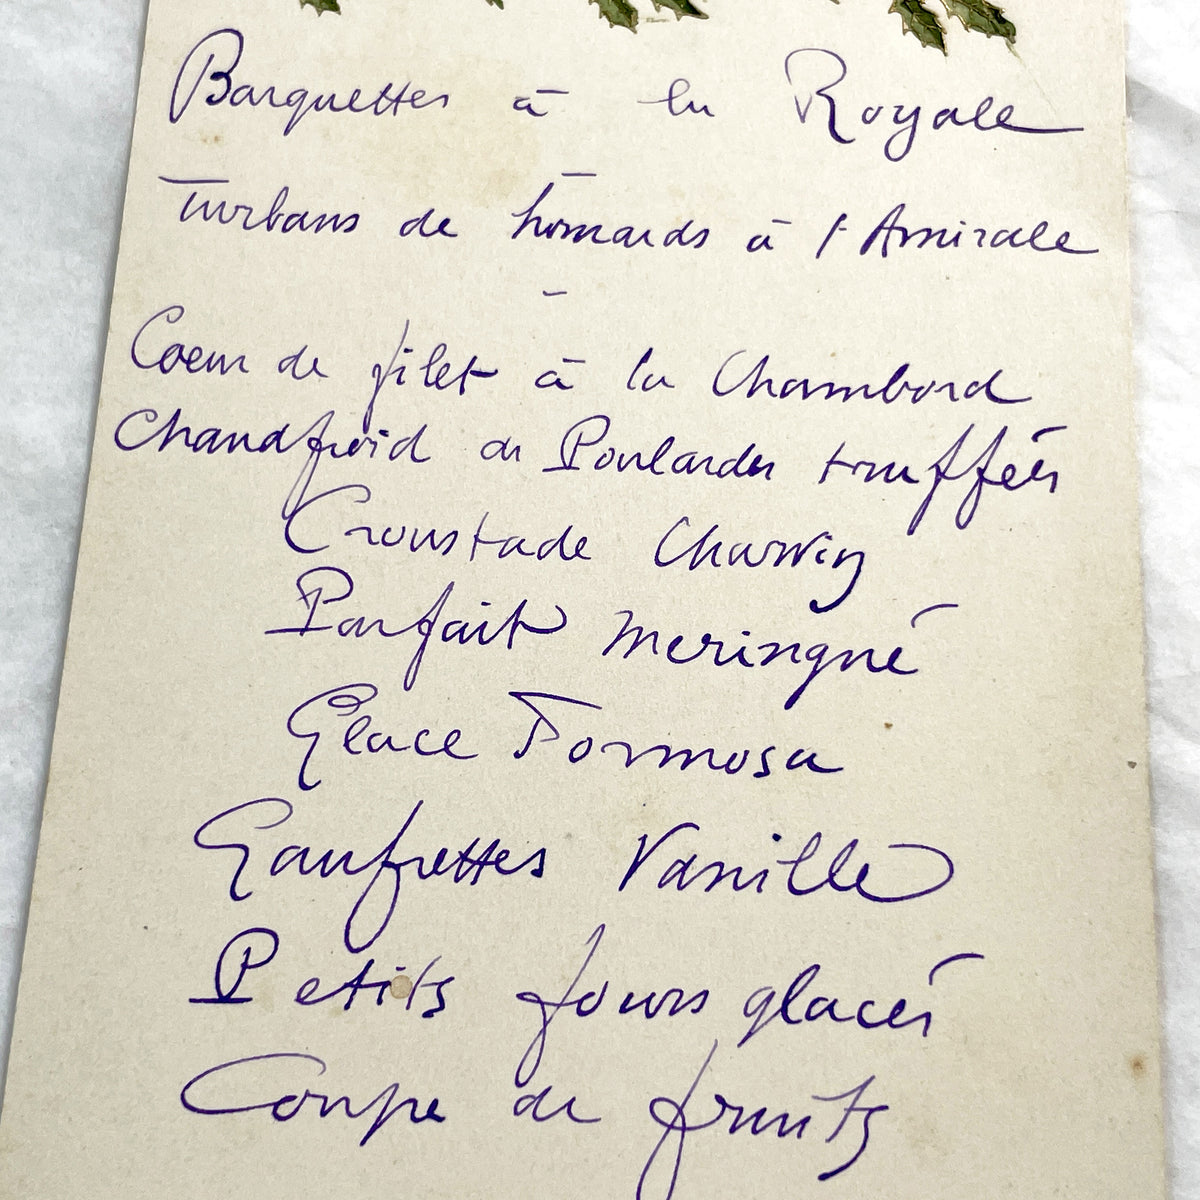 Barquettes à la Royale
Turbans de homards à l'Amirale
Coeur de filet à la Chambord
Chaudfroid de Poulardes truffées
Croustade
Parfait meringué
Glace Formosa
Gaufrettes Vanille
Petits fours glacés
Coupe de fruits